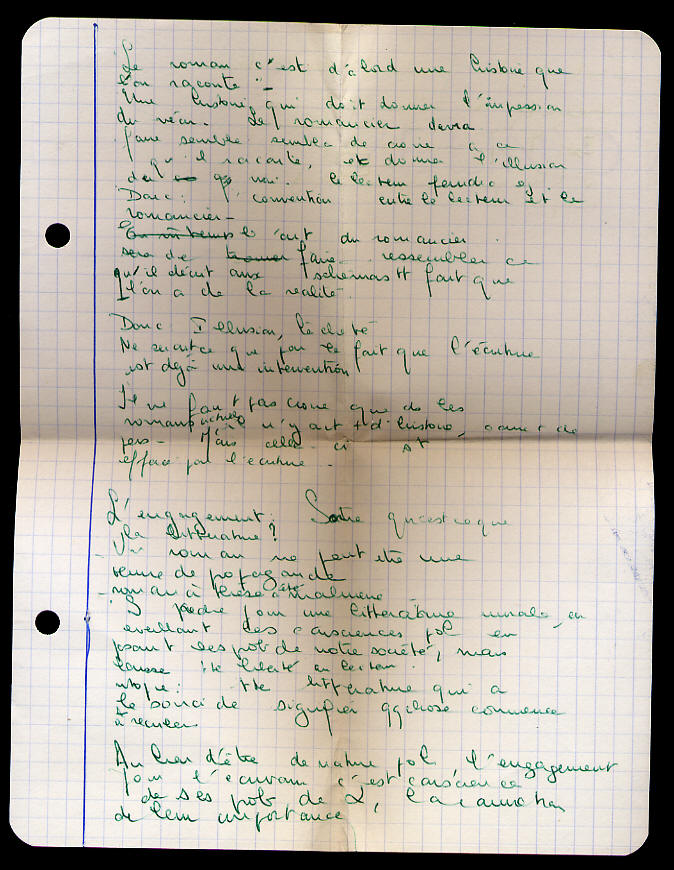 Le roman c'est d'abord une histoire que
l'on raconte :-
Une histoire qui doit donner l'impression
du vécu. Le romancier devra
faire semble semblt de croire à ce
qu'il raconte, et donner l'illusion
du vrai. le lecteur
Donc : convention entre le lecteur et le
romancier -
l'art du romancier
sera de faire ressembler ce
qu'il décrit aux schémas tt fait que
l'on a de la realité.
Donc Illusion, lâcheté
Ne serait ce que par le fait que l'écriture
est déjà une intervention
Il ne faut pas croire que ds les
romans actuels il n'y ait + d'histoire,
pers - Mais celui-ci st
effacé par l'écriture.
L'engagement : Sartre qu'est ce que
la littérature ?
- Un roman ne peut etre une
revue de propagande
- roman à these
S perdre pour une littérature morale, en
eveillant des consciences pol en
posant les pob de notre société, mais
laisse tte liberté au lecteur.
utopie : tte littérature qui a
le souci de signifier qqchose commence
à reculer
Au lieu d'être de nature pol l'engagement
pour l'écrivain c'est conscience
de ses pob de L, la conviction
de leur importance